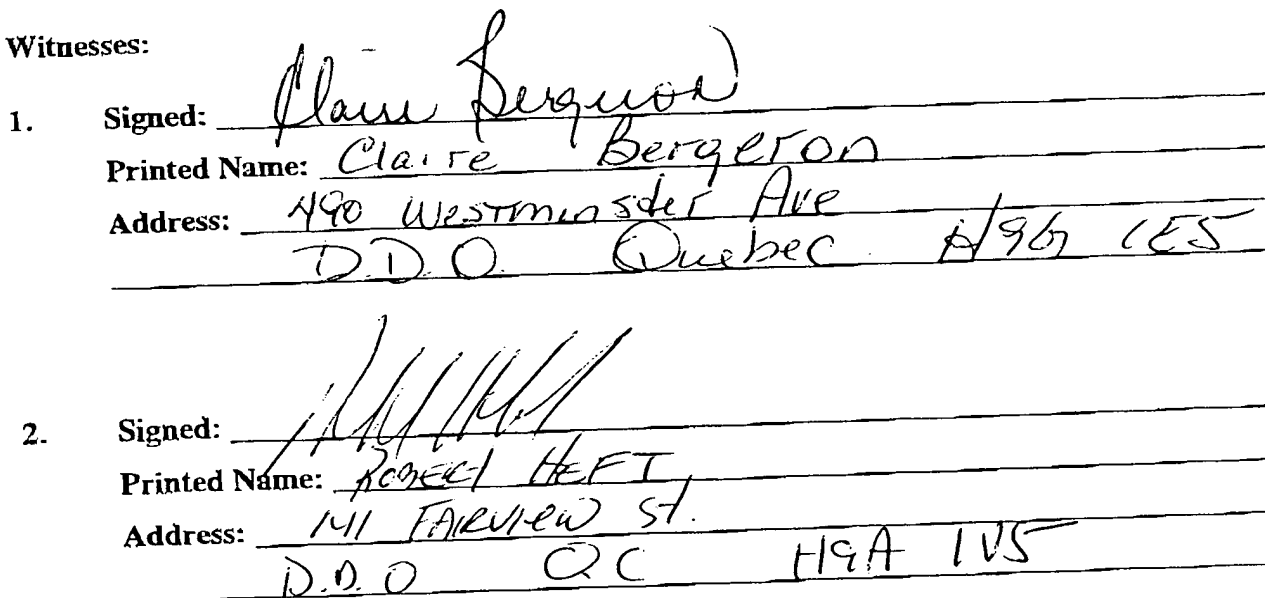 Witnesses:
1. Signed: Claire Bergeron
Printed Name: Claire Bergeron
Address: 490 Westminster Ave
D.D.O. Quebec H9G 1E5
2. Signed:
Printed Name: Robert HEFT
Address: 141 FAIRVIEW St.
D.D.O QC H9A 1V5